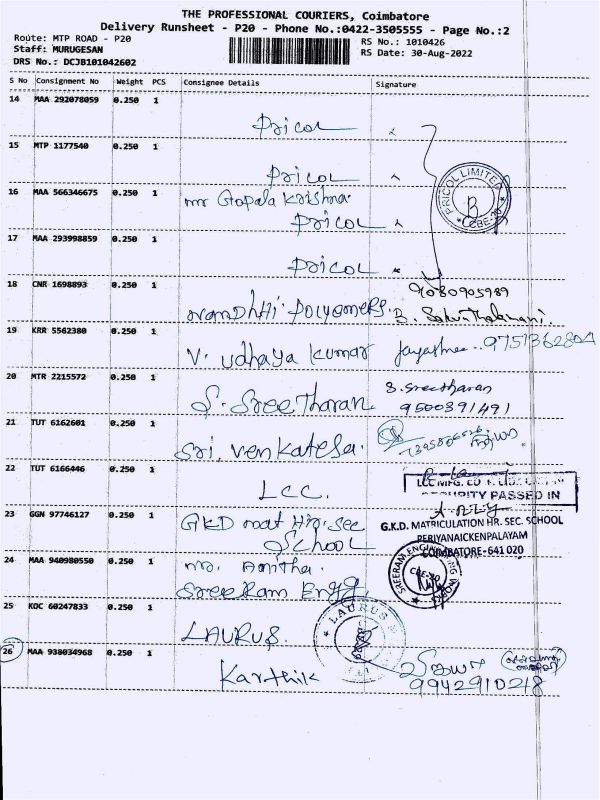 THE PROFESSIONAL COURIERS, Coimbatore
Delivery Runsheet - P20 - Phone No.:0422-3505555 - Page No.:2
Route: MTP ROAD - P20
RS No.: 1010426
Staff: MURUGESAN
RS Date: 30-Aug-2022
DRS No.: DCJB101042602
S No Consignment No Weight PCS Consignee Details Signature
14 MAA 292078059 0.250 1
Pricol
15 MTP 1177540 0.250 1
Pricol
PRICOL LIMITED
CBE-20
16 MAA 566346675 0.250 1
mr Gopala Krishna
Pricol
17 MAA 293998859 0.250 1
Pricol
18 CNR 1698893 0.250 1
9080905989
Nandhhi Polyomers. B. Sakunthalamani
19 KRR 5562380 0.250 1
V. Udhaya Kumar Jayashree.. 9751362804
20 MTR 2215572 0.250 1
S. Sreetharan
S. Sree Tharan. 9500391491
21 TUT 6162601 0.250 1
Sri. Venkatesa.
22 TUT 6166446 0.250 1
LCC.
SECURITY PASSED IN
23 GGN 97746127 0.250 1
GKD mat Hr. Sec
School
G.K.D. MATRICULATION HR. SEC. SCHOOL
PERIYANAICKENPALAYAM
COIMBATORE-641 020
24 MAA 940980550 0.250 1
mr. Anitha.
SreeRam Engg
SREERAM ENGINEERING
CBE-20
25 KOC 60247833 0.250 1
LAURUS.
LAURUS
26 MAA 938034968 0.250 1
Karthik
விஜயா
9942910218